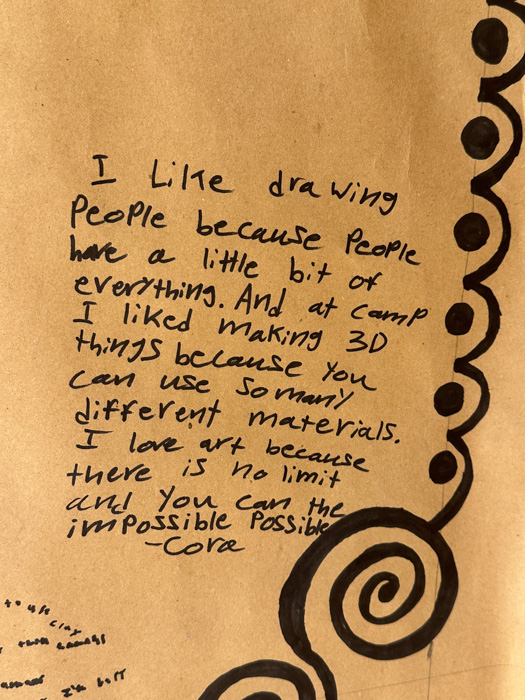 I Like drawing
People because People
have a little bit of
everything. And at camp
I liked making 3D
things because you
can use so many
different materials.
I love art because
there is no limit
and you can the
impossible Possible
-Cora